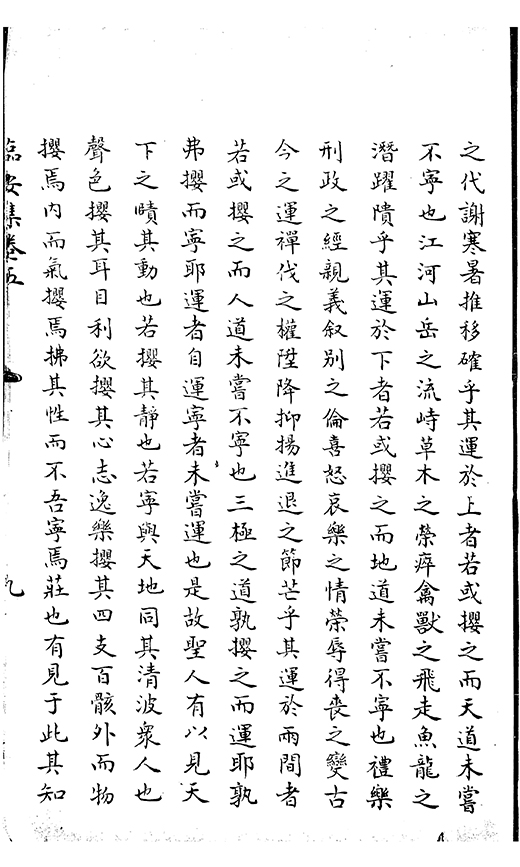 之代謝寒暑推移確乎其運於上者若或攖之而天道未嘗
不寧也江河山岳之流峙草木之榮瘁禽獸之飛走魚龍之
潛躍隤乎其運於下者若或攖之而地道未嘗不寧也禮樂
刑政之經親義叙别之倫喜怒哀樂之情榮辱得喪之變古
今之運禪伐之權陞降抑揚進退之節芒乎其運於兩間者
若或攖之而人道未嘗不寧也三極之道孰攖之而運耶孰
弗攖而寧耶運者自運寧者未嘗運也是故聖人有以見天
下之賾其動也若攖其靜也若寧與天地同其清波衆人也
聲色攖其耳目利欲攖其心志逸樂攖其四支百骸外而物
攖焉内而氣攖焉拂其性而不吾寧焉莊也有見于此其知
臨安集卷五
九